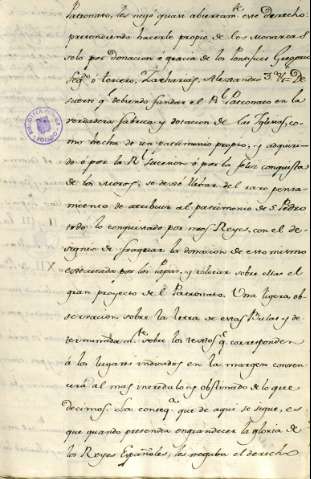 Patronato, les negó quasi abiertam.te este derecho
pretendiendo hacerle propio de los Monarcas
solo por donacion ó gracia de los Pontifices Gregorio
Seg.o ó tercero, Zacharias, Alexandro 3.o y 2.o De
suerte q.e debiendo fundar el R.l Patronato en la
verdadera fabrica y dotacion de las Iglesias, co,
mo hecha de un patrimonio propio, y adquiri
do ó por la R.l sucesion ó por la feliz conquista
de los Moros, se dexó llevar del raro pensa
miento de atribuir al patrimonio de S. Pedro
todo lo conquistado por nros Reyes, con el de
signio de fraguar la donacion de esto mismo
executada por los Papas, y colocar sobre ellas el
gran proyecto de el Patronato. Una ligera ob
servacion sobre la letra de estas Bulas y de
terminadam.te sobre los textos q.e corresponden
á los lugares indicados en la margen conven
cerá al mas incredulo y obstinado de lo que
decimos. La conseq.a que de aqui se sigue, es
que quando pretendia engrandecer la gloria de
los Reyes Españoles, les negaba el derecho